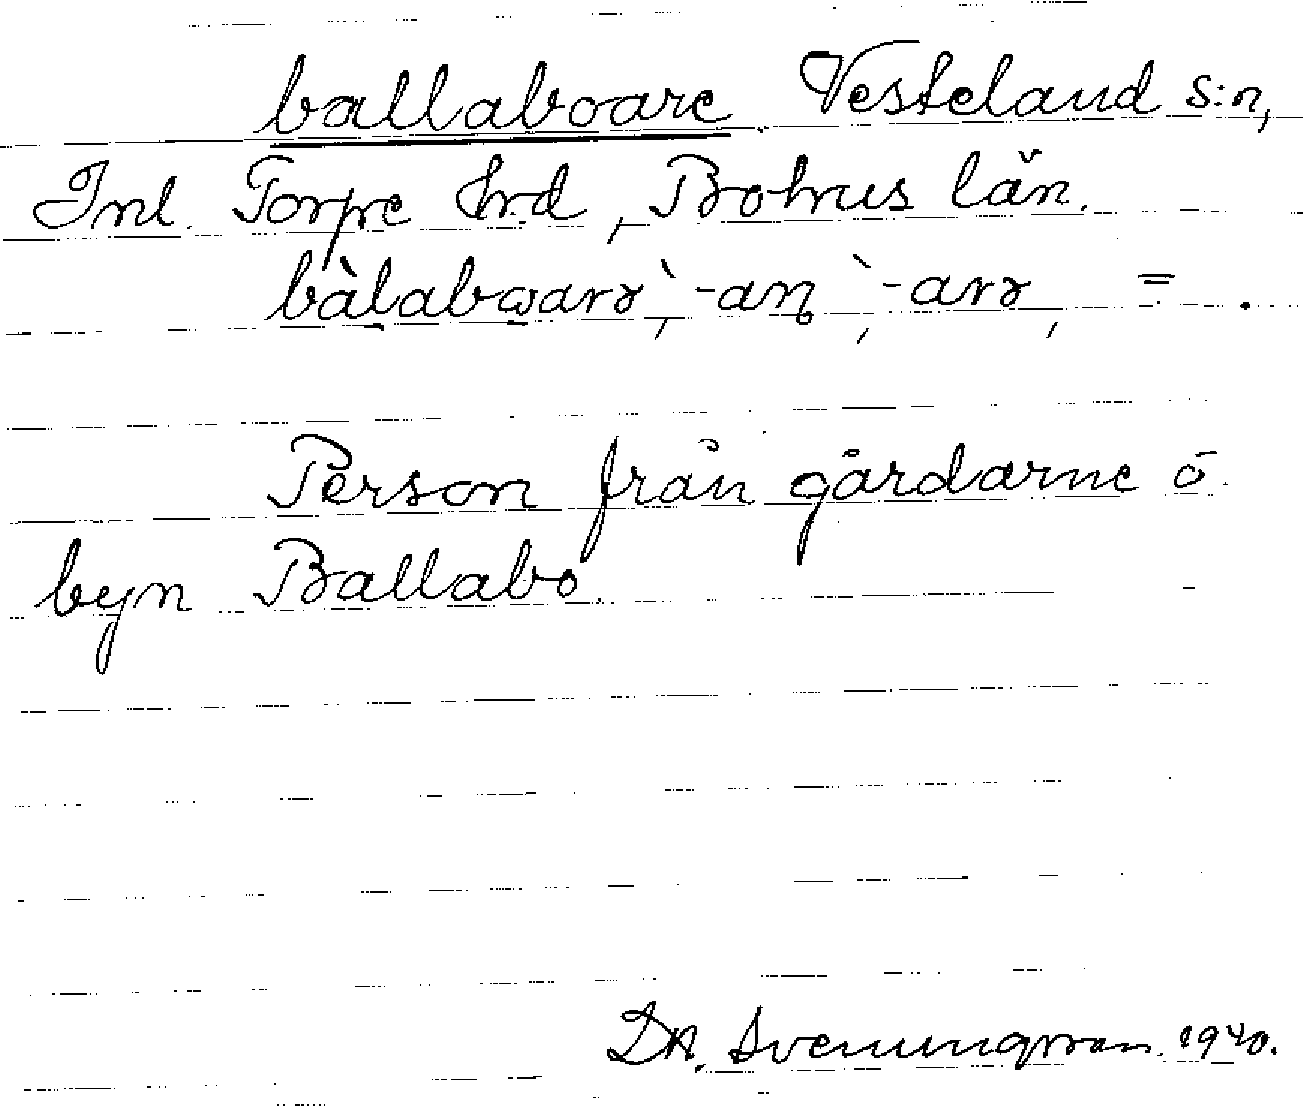 ballaboare. Vesteland s:n,
Inl. Torpe hrd, Bohus län.
bàl̩abωarə̀, -aǹ̥, -arə, = .
Person från gårdarne o
byn Ballabo.
DA. Svenungsson 1940.